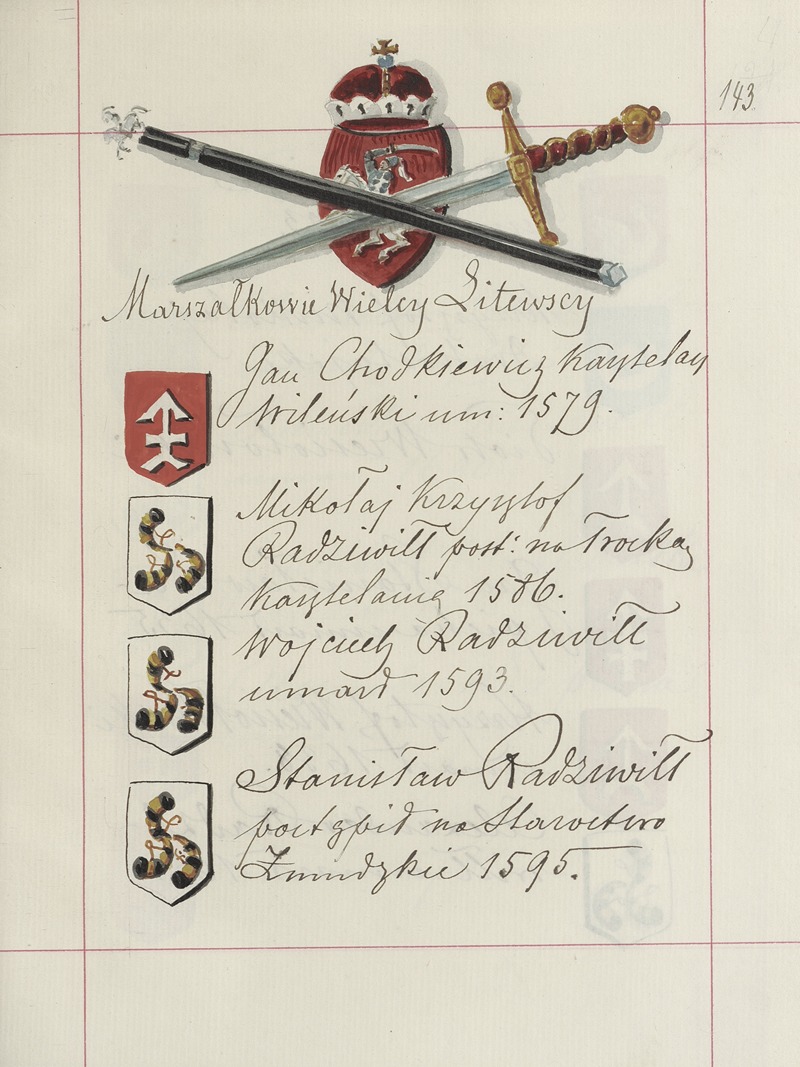 143
Marszałkowie Wielcy Litewscy
Jan Chodkiewicz Kasztelan
Wileński um: 1579.
Mikołaj Krzysztof
Radziwiłł post: na Trocką
Kasztelanię 1586.
Wojciech Radziwiłł
umarł 1593.
Stanisław Radziwiłł
postąpił na Starostwo
Żmudzkie 1595.